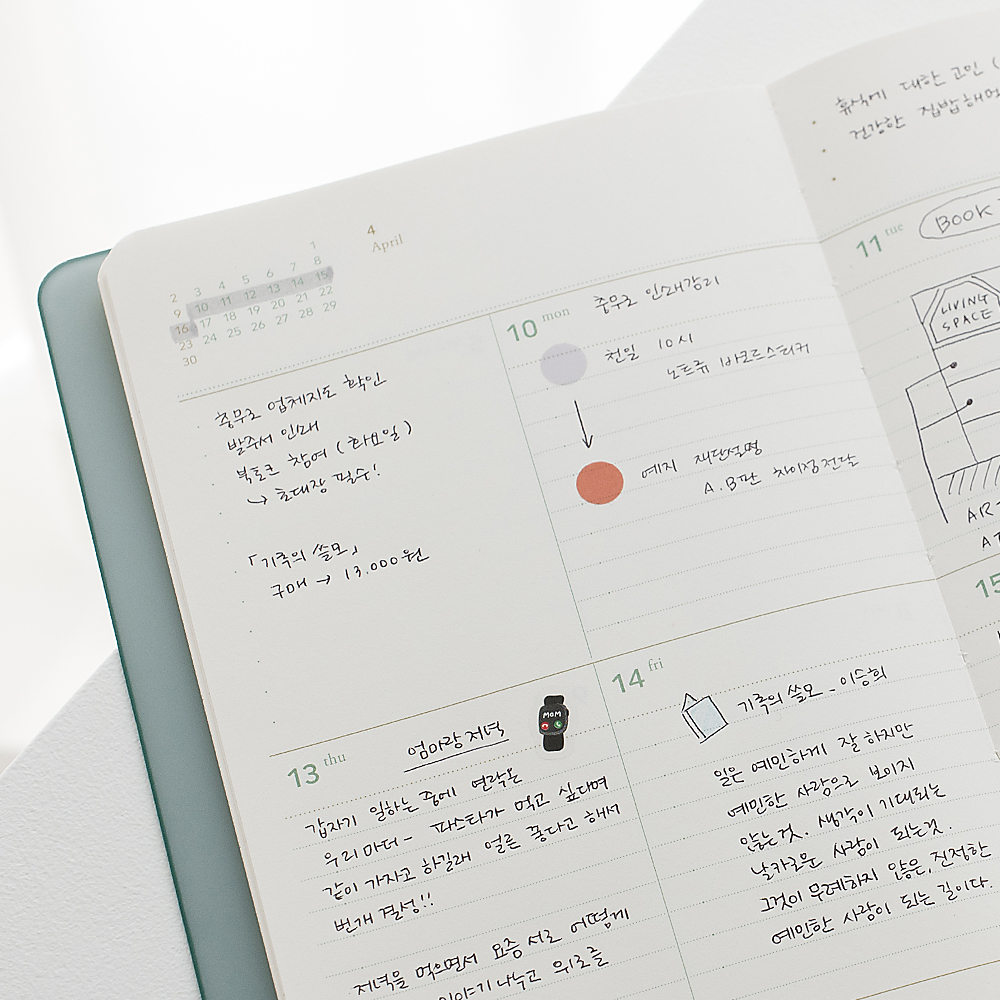 4
April
1
2 3 4 5 6 7 8
9 10 11 12 13 14 15
16 17 18 19 20 21 22
23 24 25 26 27 28 29
30
충무로 업체지도 확인
발주서 인쇄
북토크 참여 (화요일)
↳ 초대장 필수!
「기록의 쓸모」
구매 → 13.000원
10 mon
충무로 인쇄감리
천일 10시
노트류 바코드스티커
예지 재단설명
A.B판 차이점전달
13 thu
엄마랑 저녁
MOM
갑자기 일하는 중에 연락온
우리 마더- 파스타가 먹고 싶다며
같이 가자고 하길래 얼른 좋다고 해서
번개 결성!!
저녁을 먹으면서 요즘 서로 어떻게
이야기 나누고 위로를
14 fri
기록의 쓸모 - 이승희
일은 예민하게 잘 하지만
예민한 사람으로 보이지
않는것. 생각이 기대되는
날카로운 사람이 되는것.
그것이 무례하지 않은, 진정한
예민한 사람이 되는 길이다.
휴식에 대한 고민 (
건강한 집밥해먹
11 tue
BOOK
LIVING
SPACE
AR
15